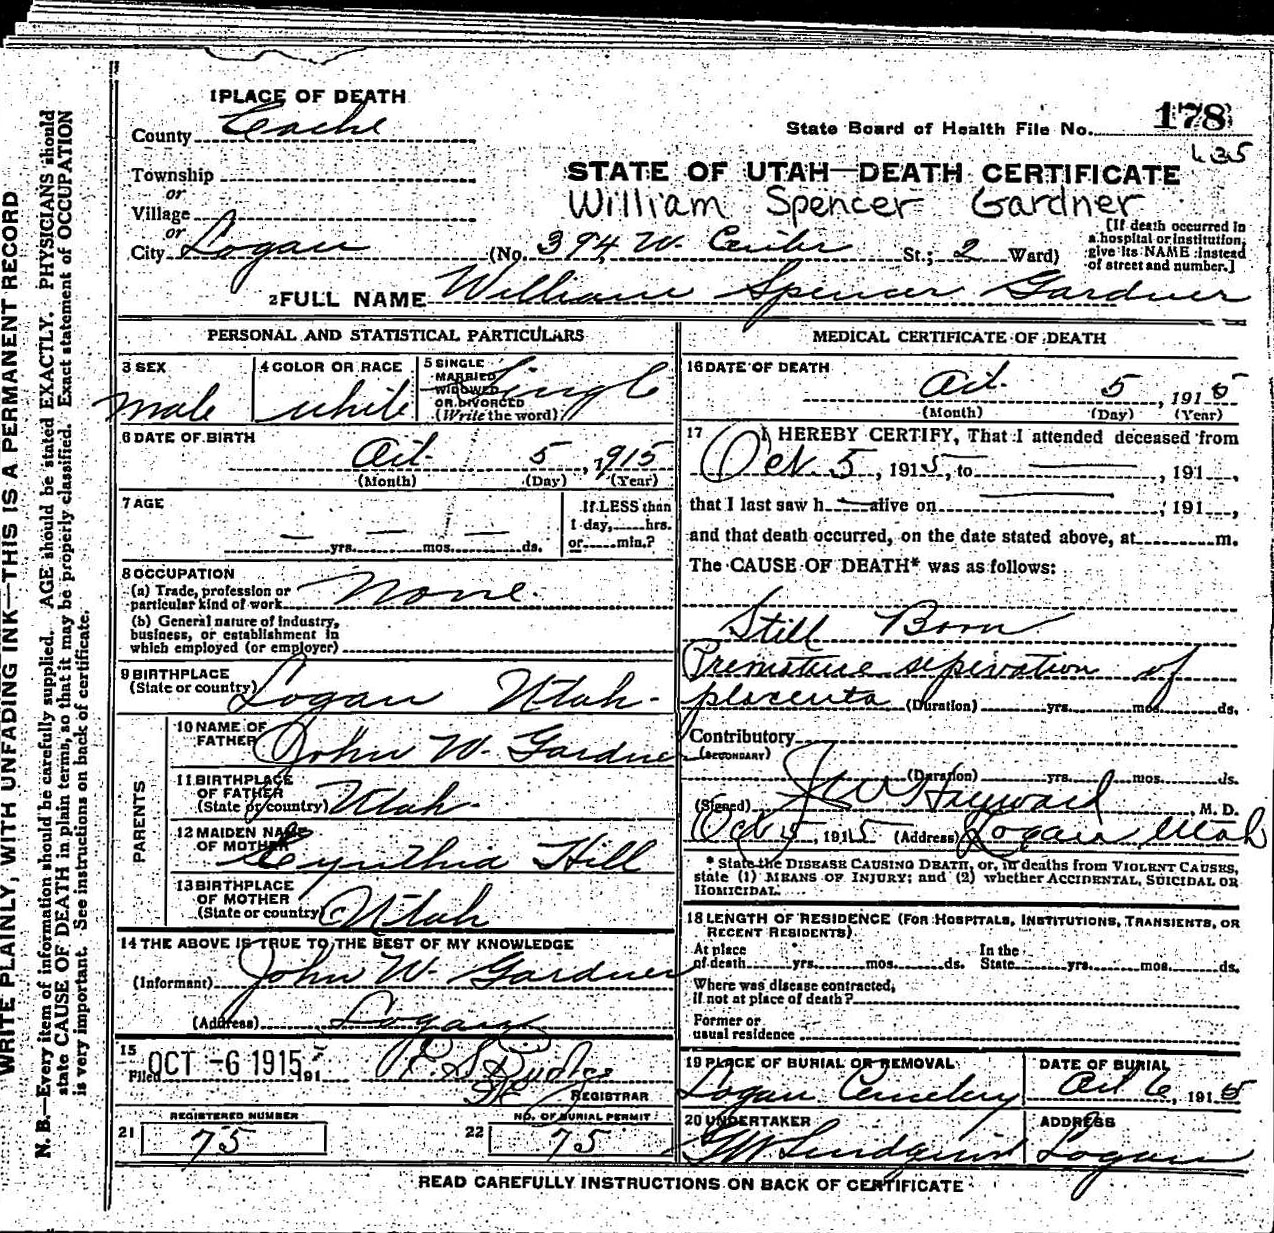 WRITE PLAINLY, WITH UNFADING INK—THIS IS A PERMANENT RECORD
N. B.—Every item of information should be carefully supplied. AGE should be stated EXACTLY. PHYSICIANS should
state CAUSE OF DEATH in plain terms, so that it may be properly classified. Exact statement of OCCUPATION
is very important. See instructions on back of certificate.
1 PLACE OF DEATH
County Cache
Township
or
Village
or
City Logan
State Board of Health File No. 178
435
STATE OF UTAH—DEATH CERTIFICATE
William Spencer Gardner
(No. 394 W. Center St.; 2 Ward)
[If death occurred in
a hospital or institution,
give its NAME instead
of street and number.]
2 FULL NAME William Spencer Gardner
PERSONAL AND STATISTICAL PARTICULARS
3 SEX
male
4 COLOR OR RACE
white
5 SINGLE
MARRIED
WIDOWED
OR DIVORCED
(Write the word)
Single
6 DATE OF BIRTH
Oct. 5, 1915
(Month) (Day) (Year)
7 AGE
— yrs. — mos. — ds.
If LESS than
1 day, hrs.
or min.?
8 OCCUPATION
(a) Trade, profession or
particular kind of work None.
(b) General nature of industry,
business, or establishment in
which employed (or employer)
9 BIRTHPLACE
(State or country) Logan Utah.
PARENTS
10 NAME OF
FATHER John W. Gardner
11 BIRTHPLACE
OF FATHER
(State or country) Utah.
12 MAIDEN NAME
OF MOTHER Cynthia Hill
13 BIRTHPLACE
OF MOTHER
(State or country) Utah
14 THE ABOVE IS TRUE TO THE BEST OF MY KNOWLEDGE
(Informant) John W. Gardner
(Address) Logan
15
Filed OCT -6 1915, 191
REGISTRAR
REGISTERED NUMBER
21 75
NO. OF BURIAL PERMIT
22 75
MEDICAL CERTIFICATE OF DEATH
16 DATE OF DEATH
Oct. 5, 1915
(Month) (Day) (Year)
17 I HEREBY CERTIFY, That I attended deceased from
Oct. 5, 1915, to —, 191 ,
that I last saw h — alive on —, 191 ,
and that death occurred, on the date stated above, at m.
The CAUSE OF DEATH* was as follows:
Still Born
Premature sepiration of
placenta (Duration) yrs. mos. ds.
Contributory
(SECONDARY)
(Duration) yrs. mos. ds.
(Signed) J W Hayward, M. D.
Oct 5, 1915 (Address) Logan Utah
* State the DISEASE CAUSING DEATH, or, in deaths from VIOLENT CAUSES,
state (1) MEANS OF INJURY; and (2) whether ACCIDENTAL, SUICIDAL OR
HOMICIDAL.
18 LENGTH OF RESIDENCE (FOR HOSPITALS, INSTITUTIONS, TRANSIENTS, OR
RECENT RESIDENTS)
At place In the
of death yrs. mos. ds. State yrs. mos. ds.
Where was disease contracted,
if not at place of death?
Former or
usual residence
19 PLACE OF BURIAL OR REMOVAL
Logan Cemetery
DATE OF BURIAL
Oct 6, 1915
20 UNDERTAKER
GW Lindquist
ADDRESS
Logan
READ CAREFULLY INSTRUCTIONS ON BACK OF CERTIFICATE